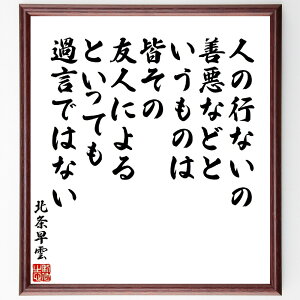 人の行ないの
善悪などと
いうものは
皆その
友人による
といっても
過言ではない
北条早雲